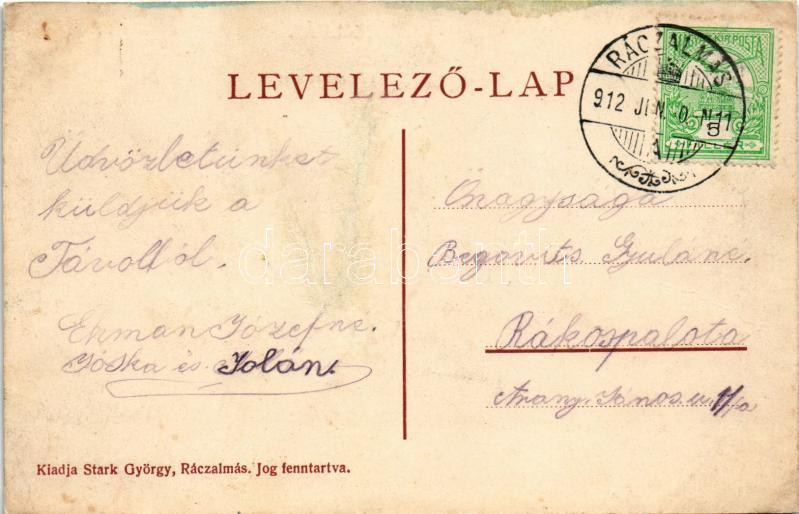 LEVELEZŐ-LAP
RÁCZALMÁS
912 JUN. N11
A
KIR.POSTA
5
Üdvözletünket
küldjük a
Távolból.
Ekman Józefne.
Jóska és Jolán.
Őnagysága
Begovits Gyuláne.
Rákospalota
Arany János u. 11/a
Kiadja Stark György, Ráczalmás. Jog fenntartva.
darabanth